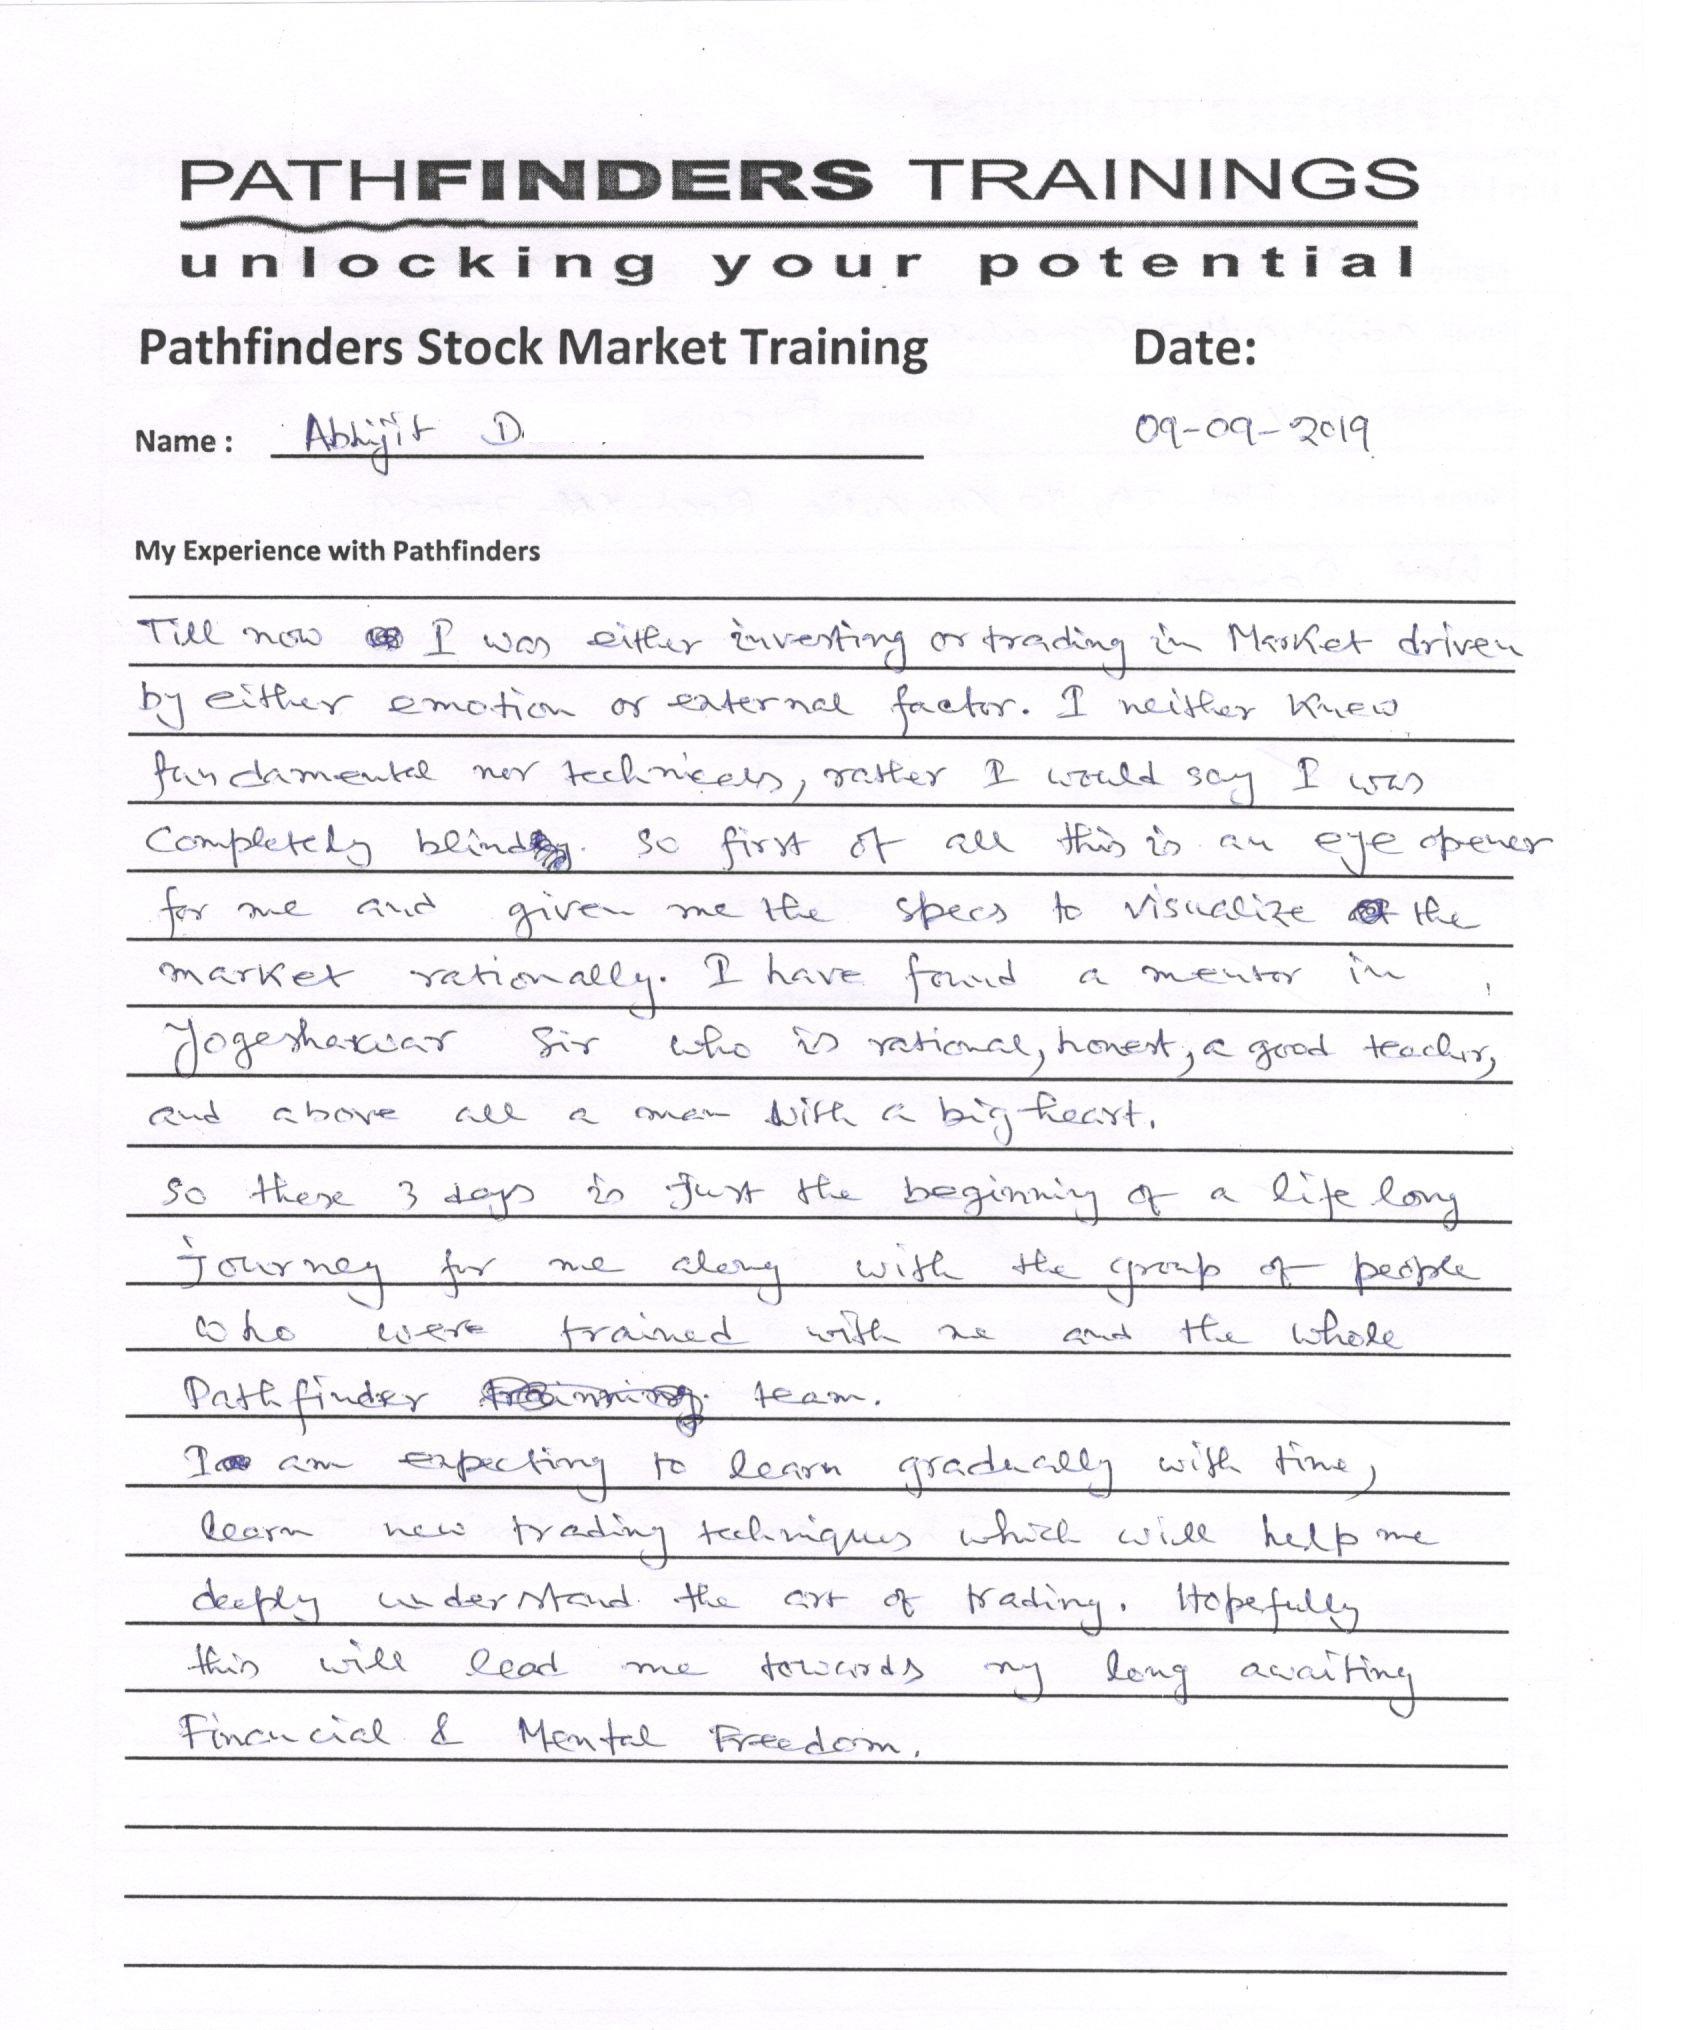 PATHFINDERS TRAININGS
unlocking your potential
Pathfinders Stock Market Training Date:
Name : Abhijit D. 09-09-2019
My Experience with Pathfinders
Till now I was either investing or trading in Market driven
by either emotion or external factor. I neither knew
fundamental nor technicals, rather I would say I was
completely blind. So first of all this is an eye opener
for me and given me the specs to visualize the
market rationally. I have found a mentor in
Yogeshwar Sir who is rational, honest, a good teacher,
and above all a man with a big heart.
So these 3 days is just the beginning of a life long
journey for me along with the group of people
who were trained with me and the whole
Pathfinder team.
I am expecting to learn gradually with time,
learn new trading techniques which will help me
deeply understand the art of trading. Hopefully
this will lead me towards my long awaiting
Financial & Mental Freedom.